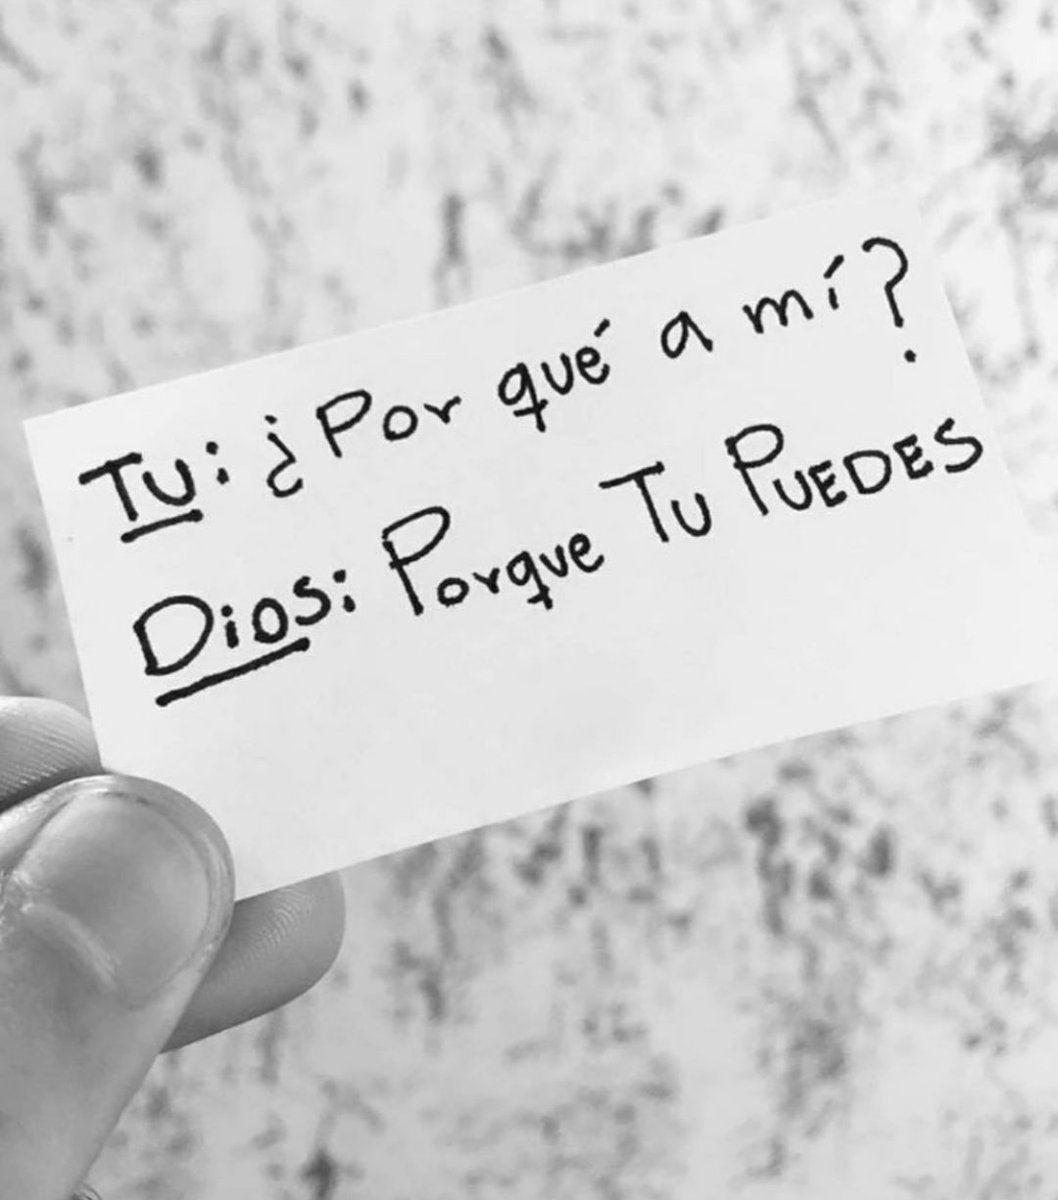 Tu: ¿Por qué a mí?
Dios: Porque Tu PUEDES